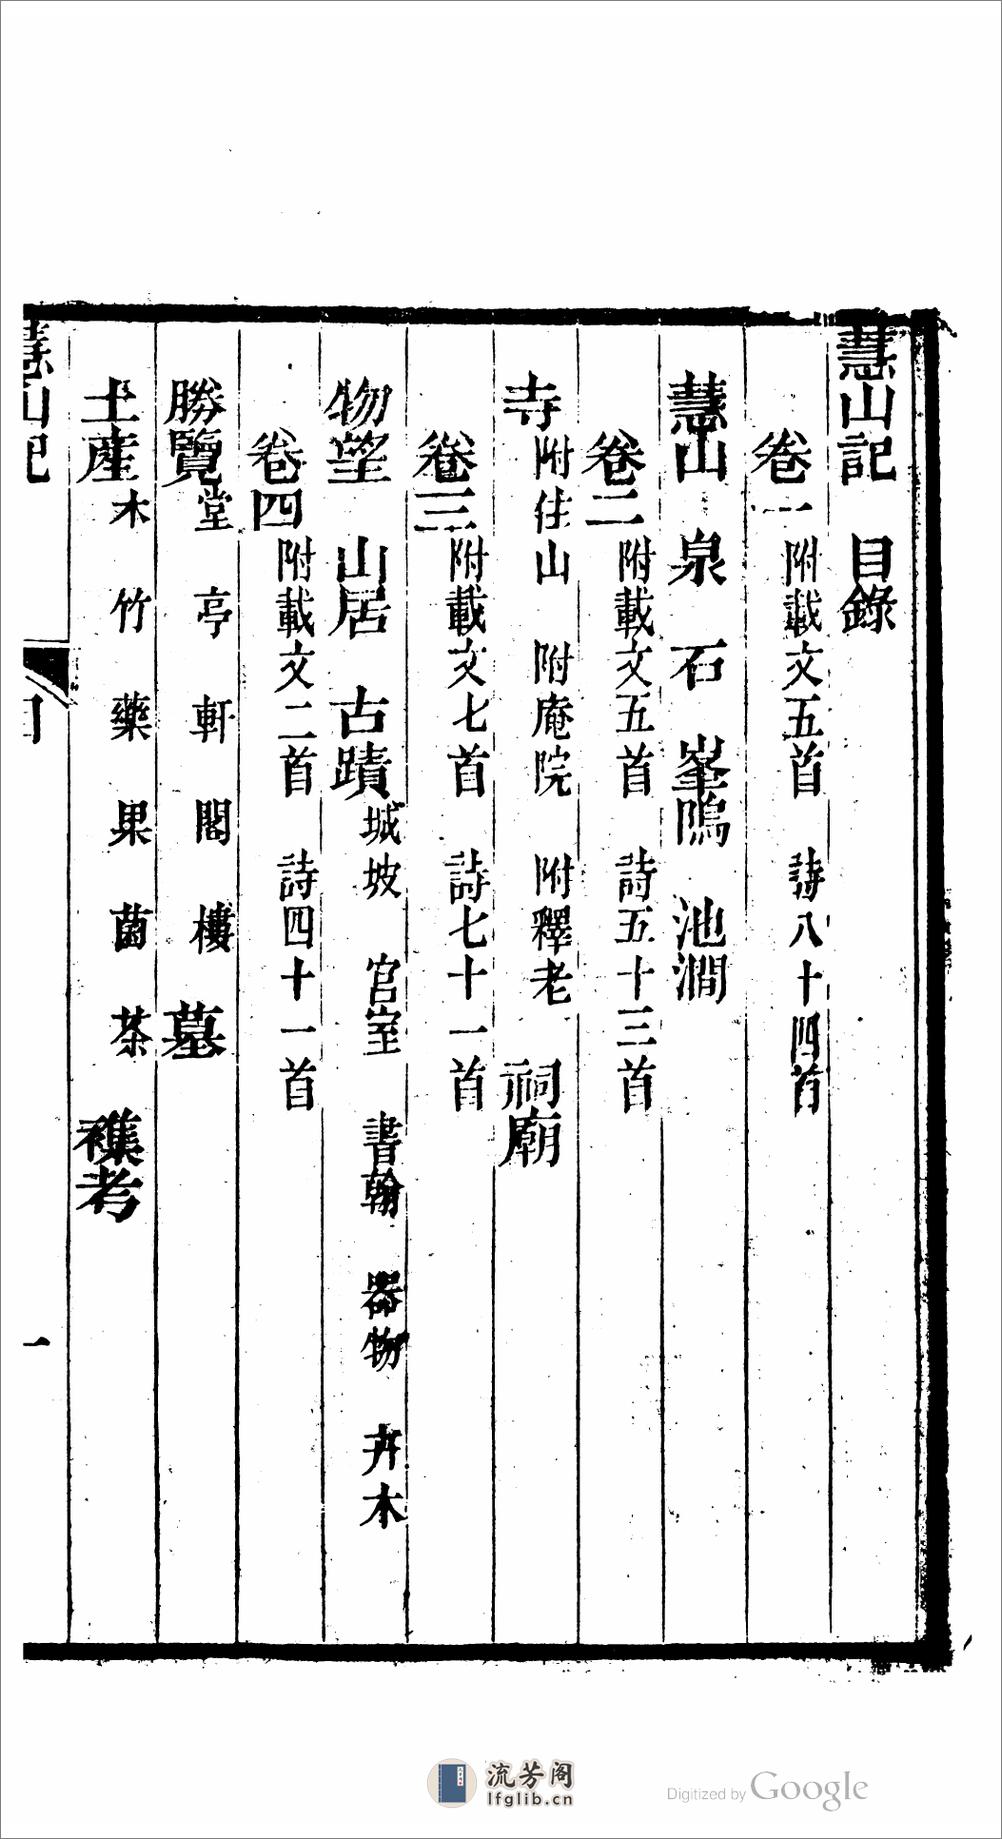 慧山記　目錄
卷一　附載文五首　詩八十四首
慧山　泉　石　峯隖　池澗
卷二　附載文五首　詩五十三首
寺　附住山　附庵院　附釋老　祠廟
卷三　附載文七首　詩七十一首
物望　山居　古蹟　城坡　官室　書翰　器物　卉木
卷四　附載文二首　詩四十一首
勝覽　堂　亭　軒　閣　樓　墓
土產　木　竹　藥　果　茵　茶　襍考
慧山記　目　一
流芳阁
lfglib.cn
Digitized by Google